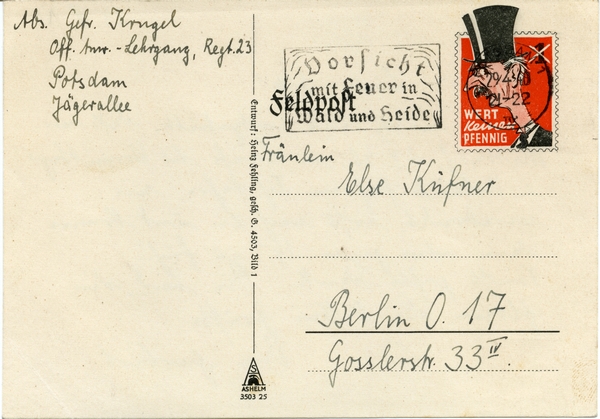 Abs. Gefr. Krugel
Off. Anw.-Lehrgang, Regt. 23
Potsdam
Jägerallee
Vorsicht
mit Feuer in
Wald und Heide
Feldpost
29.4.40
21-22
WERT
Keinen
PFENNIG
Fräulein
Else Küfner
Berlin O. 17
Gosslerstr. 33 IV
Entwurf: Heinz Fehling, gesch. G. 4503, Bild 1
ASHELM
3503 25